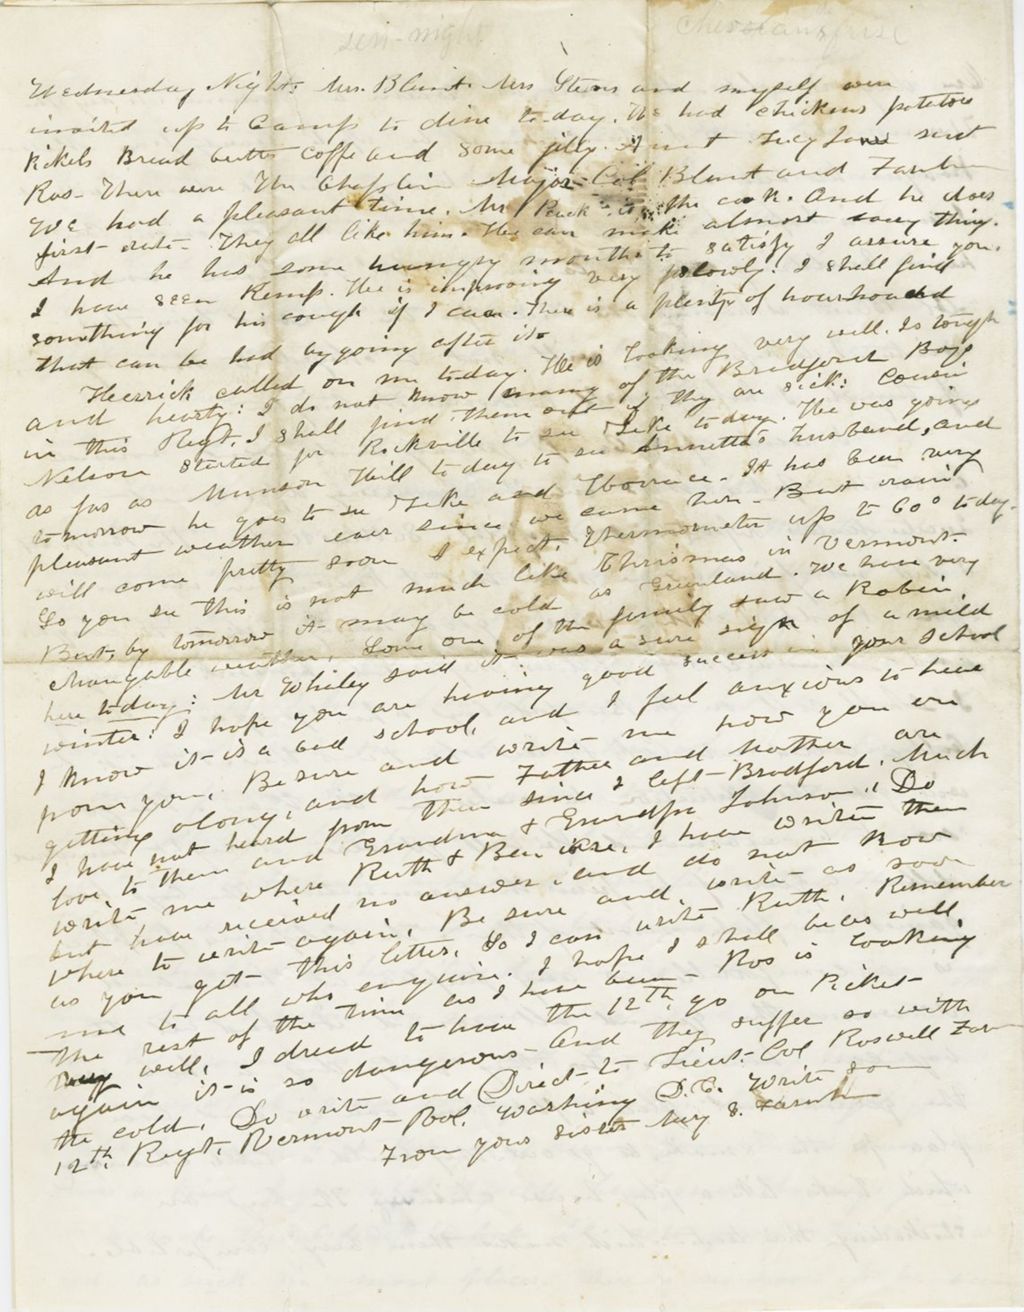 sen-night
Cheveaux frise
Wednesday Night. Mrs. Blunt Mrs Stevns and myself were
invited up to Camp to dine today. We had chickens potatoes
Pickels Bread butter coffe and some jelly. Aunt Lucy Jane sent
Ros. There were the Chaplin Major Col Blunt and Farnham
We had a pleasant time. Mr Peck is the cook. And he does
first rate. They all like him. He can make almost every thing.
And he has some hungry months to satisfy I assure you.
I have seen Kemp. He is improving very slowly. I shall find
something for his cough if I can. There is a plenty of hourhound
that can be had by going after it.
Herrick called on me today. He is looking very well. Is tough
and hearty: I do not know many of the Bradford Boys
in this Regt. I shall find them out if they are sick: Cousin
Nelson started for Rockville to see Zeke today. He was going
as far as Munson Hill today to see Annetta's husband, and
tomorrow he goes to see Zeke and Horrace. It has been very
pleasant weather ever since we came here. But rain
will come pretty soon I expect. Thermometer up to 60° today.
So you see this is not much like Chrismas in Vermont.
But, by tomorrow it may be cold as Greenland. We have very
changable weather. Some one of the family saw a Robin
here today: Mr Whiley said it was a sure sign of a mild
winter: I hope you are having good success in your school
I know it is a bad school, and I feel anxious to hear
from you, Be sure and write me how you are
getting along, and how Father and Mother are
I have not heard from them since I left Bradford. Much
love to them and Grandma & Grandpa Johnson. Do
write me where Ruth & Ben are, I have write them
but have received no answer. and do not know
where to write again, Be sure and write as soon
as you get this letter. So I can write Ruth. Remember
me to all who enquire. I hope I shall be as well,
the rest of the time as I have been. Ros is looking
well. I dread to have the 12th go on Picket
again it is so dangerous. And they suffer so with
the cold. Do write and Direct to Lieut. Col Roswell Farnham
12th Regt. Vermont Vol. Washing D.C. Write soon
From your sister Mary E. Farnham